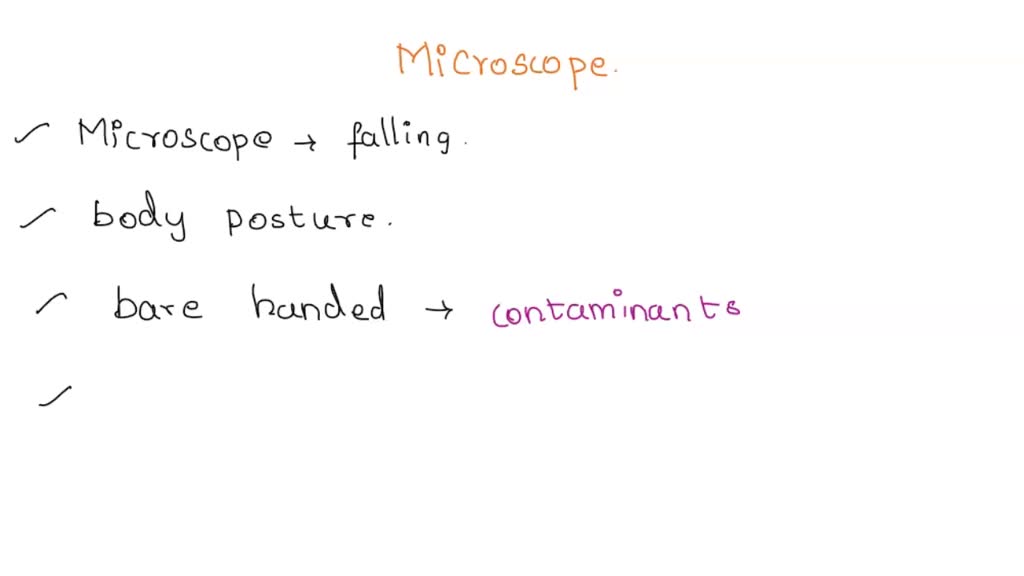 Microscope.
✓ Microscope → falling.
✓ body posture.
✓ bare handed → contaminants
✓